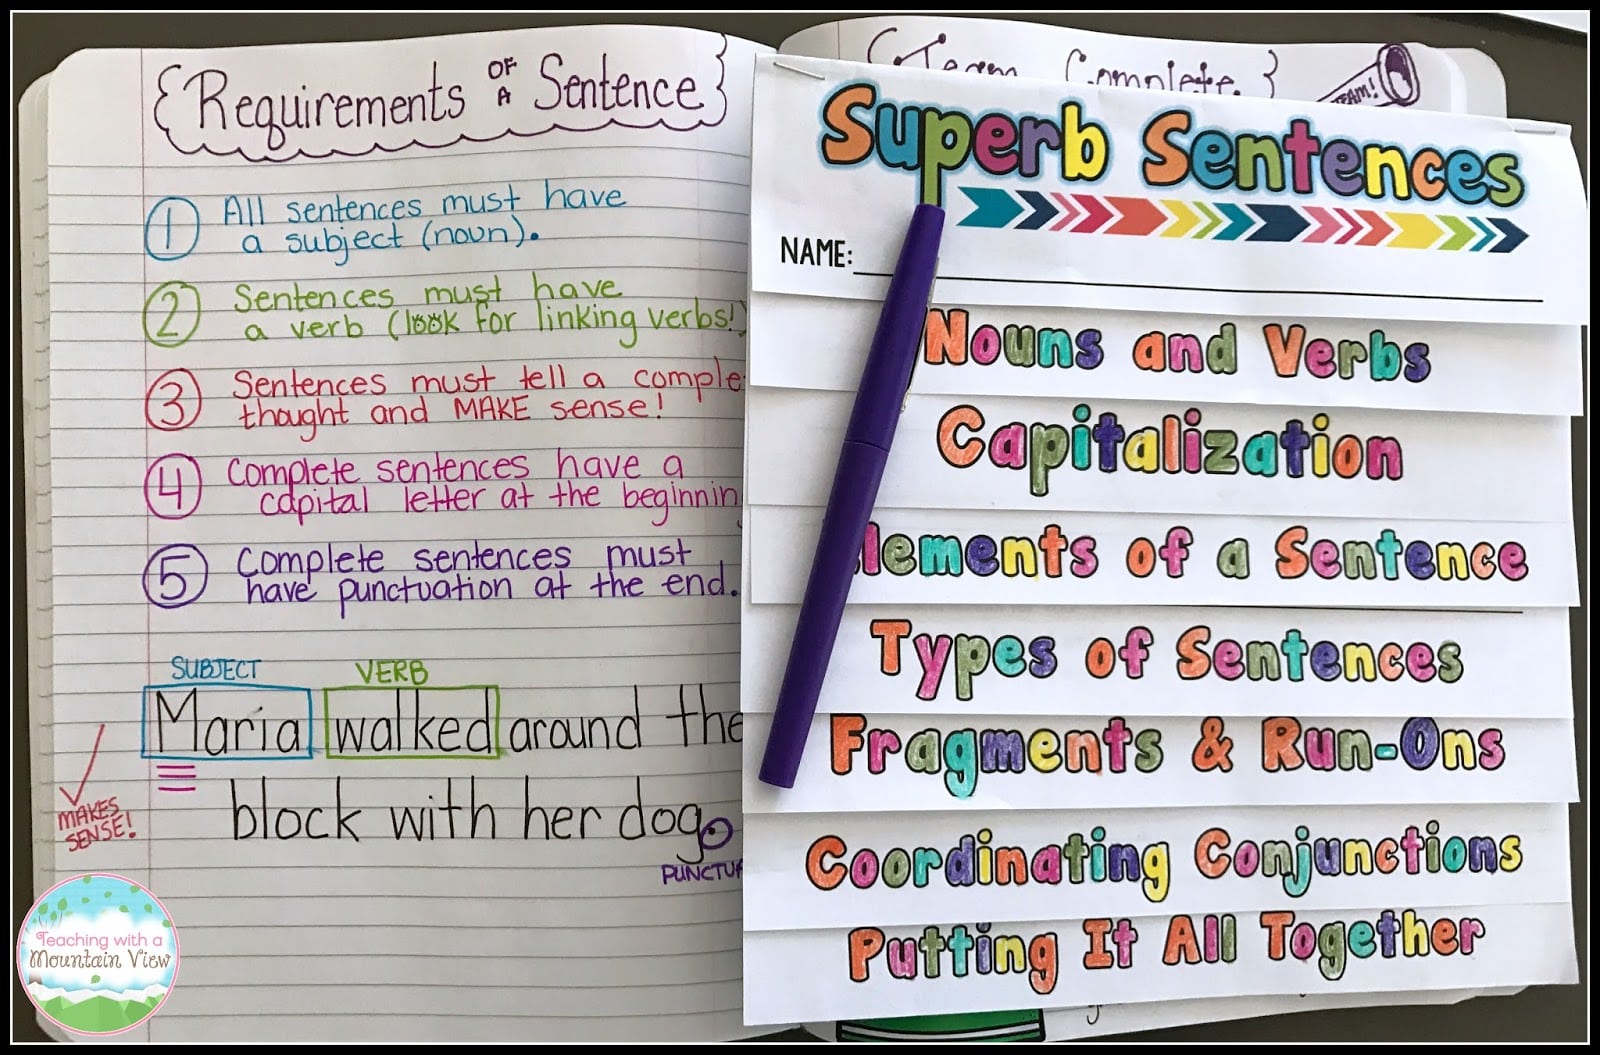 {Requirements OF A Sentence}
1 All sentences must have
a subject (noun).
2 Sentences must have
a verb (look for linking verbs!)
3 Sentences must tell a comple
thought and MAKE sense!
4 Complete sentences have a
capital letter at the beginnin
5 Complete sentences must
have punctuation at the end.
SUBJECT VERB
Maria walked around the
block with her dog.
MAKES
SENSE!
PUNCTU
Teaching with a
Mountain View
{Team Complete}
TEAM!
Superb Sentences
NAME:
Nouns and Verbs
Capitalization
lements of a Sentence
Types of Sentences
Fragments & Run-Ons
Coordinating Conjunctions
Putting It All Together